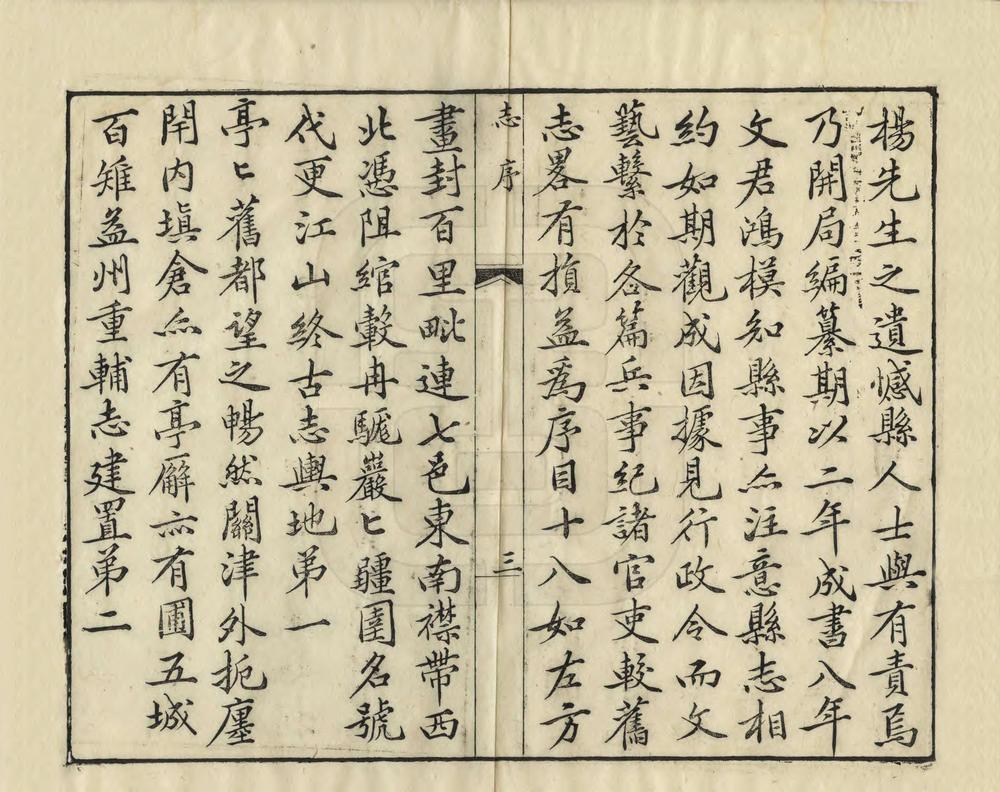 楊先生之遺憾縣人士與有責焉
乃開局編纂期以二年成書八年
文君鴻模知縣事亦注意縣志相
約如期觀成因據見行政令而文
藝繫於各篇兵事紀諸官吏較舊
志畧有損益爲序目十八如左方
志序
三
畫封百里毗連七邑東南襟帶西
北憑阻綰轂冉駹巖匕疆圉名號
代更江山終古志輿地第一
亭匕舊都望之暢然關津外扼廛
閈内塡倉亦有亭廨亦有圃五城
百雉益州重輔志建置弟二